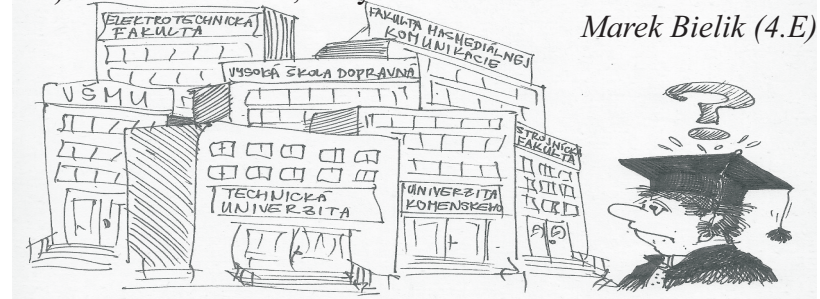 Marek Bielik (4.E)
ELEKTROTECHNICKÁ
FAKULTA
FAKULTA MASMEDIÁLNEJ
KOMUNIKÁCIE
VYSOKÁ ŠKOLA DOPRAVNÁ
VŠMU
STROJNÍCKA
FAKULTA
TECHNICKÁ
UNIVERZITA
UNIVERZITA
KOMENSKÉHO
?